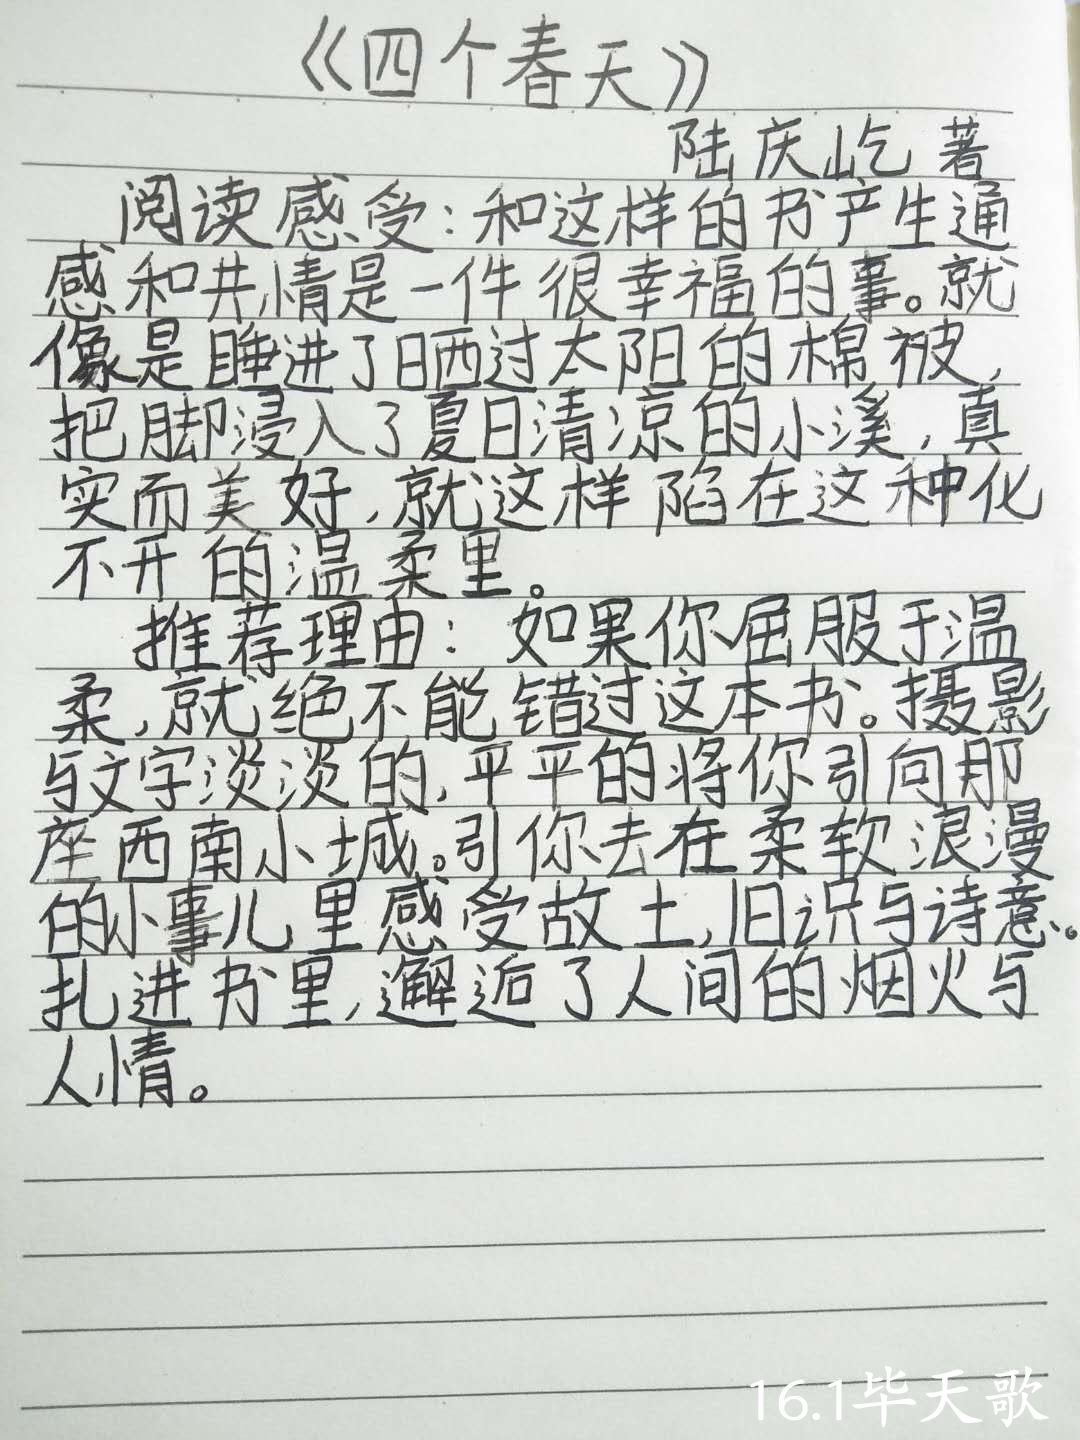 《四个春天》
陆庆屹 著
阅读感受:和这样的书产生通
感和共情是一件很幸福的事。就
像是睡进了晒过太阳的棉被,
把脚浸入了夏日清凉的小溪,真
实而美好,就这样陷在这种化
不开的温柔里。
推荐理由:如果你屈服于温
柔,就绝不能错过这本书。摄影
与文字淡淡的,平平的将你引向那
座西南小城。引你去在柔软浪漫
的小事儿里感受故土,旧识与诗意。
扎进书里,邂逅了人间的烟火与
人情。
16.1毕天歌